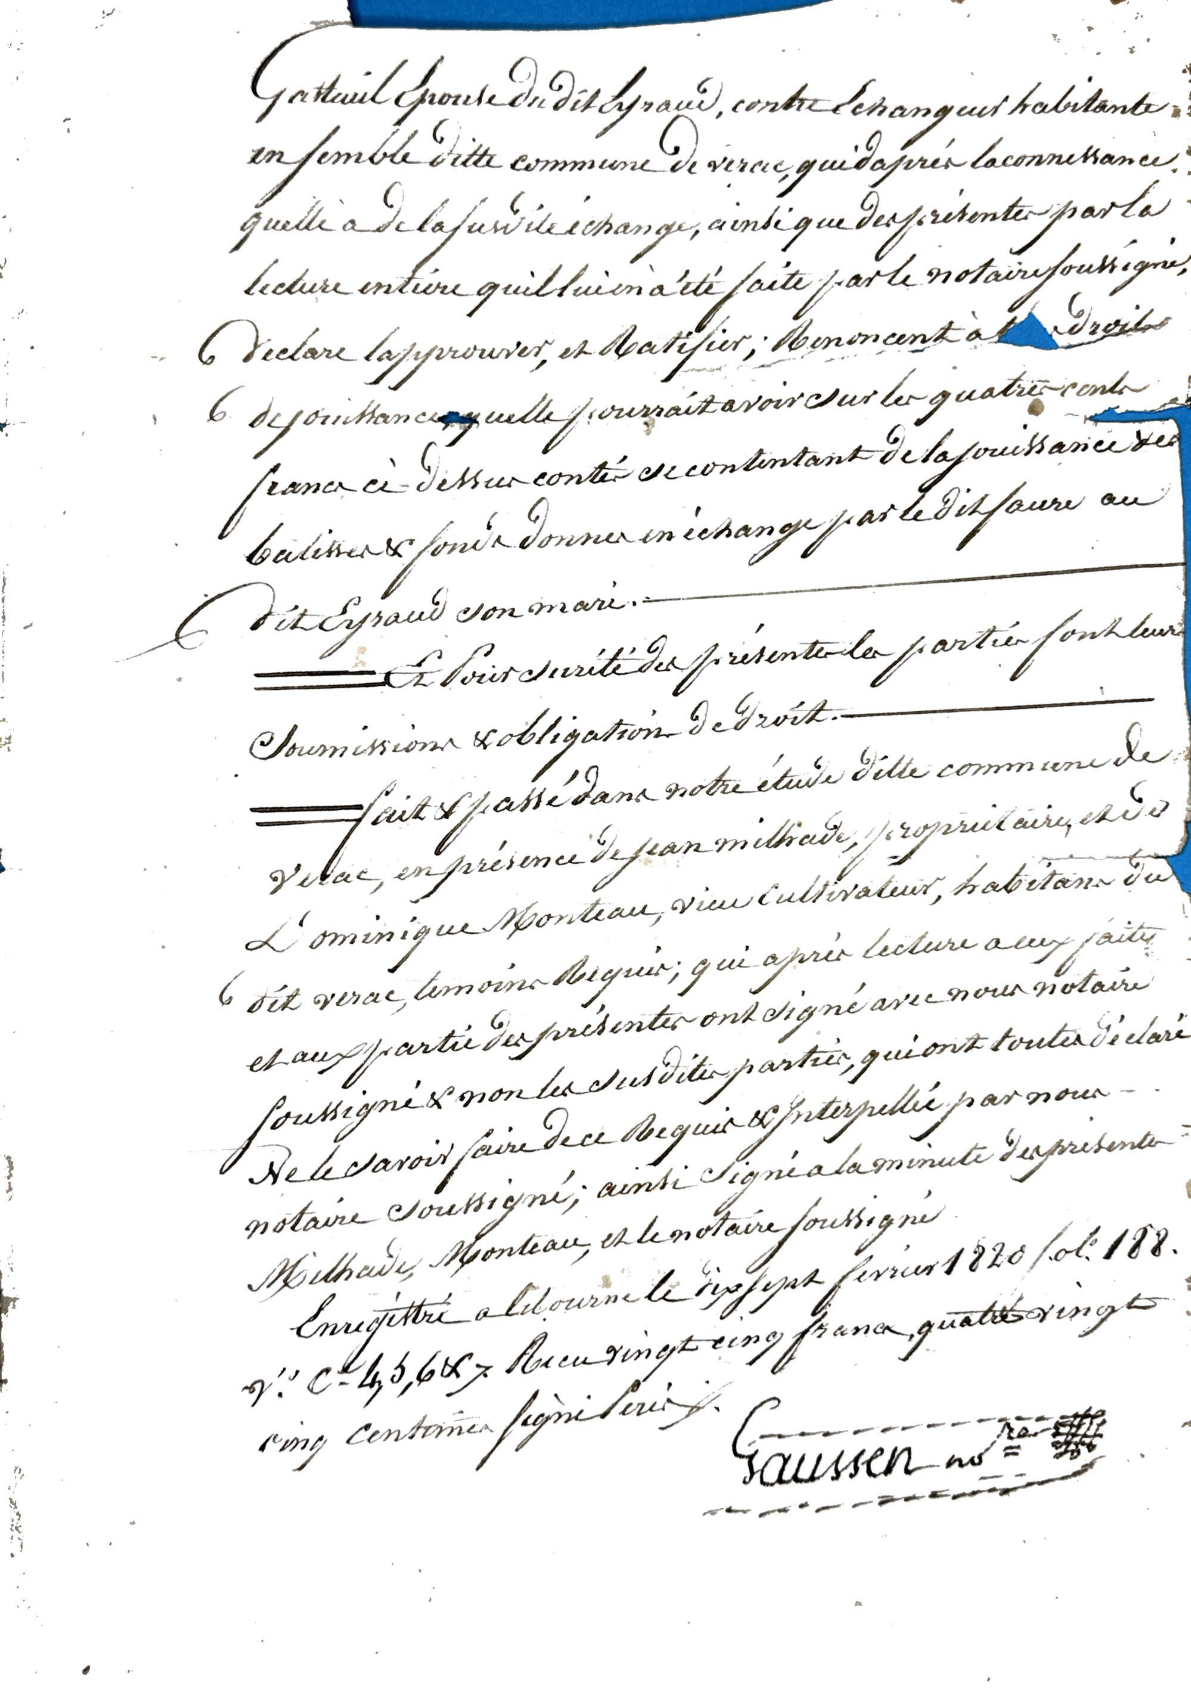 Gatteuil Epouse du dit Eyraud, contre Echangeur habitante
ensemble ditte commune de verac, qui daprés la connessance
quelle a de la susdite échange, ainsi que des présentes par la
lecture entiére quil lui en à été faite par le notaire soussigné,
declare lapprouver, et Ratifier; Renoncent à droits
de jouissance quelle pourrait avoir sur les quatres cents
francs ci-dessus contés se contentant de la jouissance des
batisses & fonds donnes en échange par le dit faure au
dit Eyraud son mari.
Et Pour sureté des présentes les parties font leurs
Soumissions & obligation de droit.
fait & passé dans notre étude ditte commune de
verac, en présence de jean milhade, propriétaire, et de
Dominique Monteau, vieu Cultivateur, habitans du
dit verac, temoins Requis; qui aprés lecture a eux faite
et aux partie des présentes ont signé avec nous notaire
soussigné & non les susdites parties, qui ont toutes déclaré
Ne le savoir faire de ce Requis & Interpellée par nous
notaire soussigné; ainsi signé a la minute des présentes
Milhade, Monteau, et le notaire soussigné
Enregistré a Libourne le dix sept février 1820 fol.º 188.
v.º C.es 4, 5, 6 & 7 Recu vingt cinq francs, quatre vingt
cinq centimes signé Periés.
Gaussen no.re